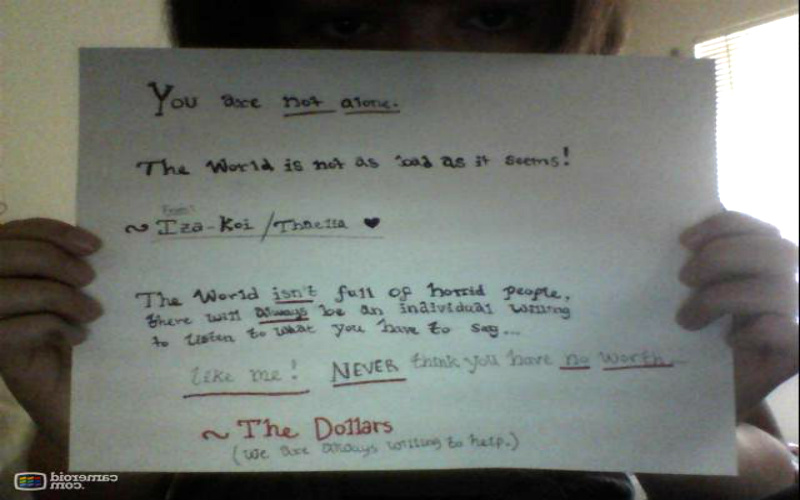 You are not alone.
The World is not as bad as it seems!
From:
~ Iza-Koi / Thaella ♥
The World isn't full of horrid people,
there will always be an individual willing
to listen to what you have to say...
like me! NEVER think you have no worth
~ The Dollars
(We are always willing to help.)
cameroid
.com